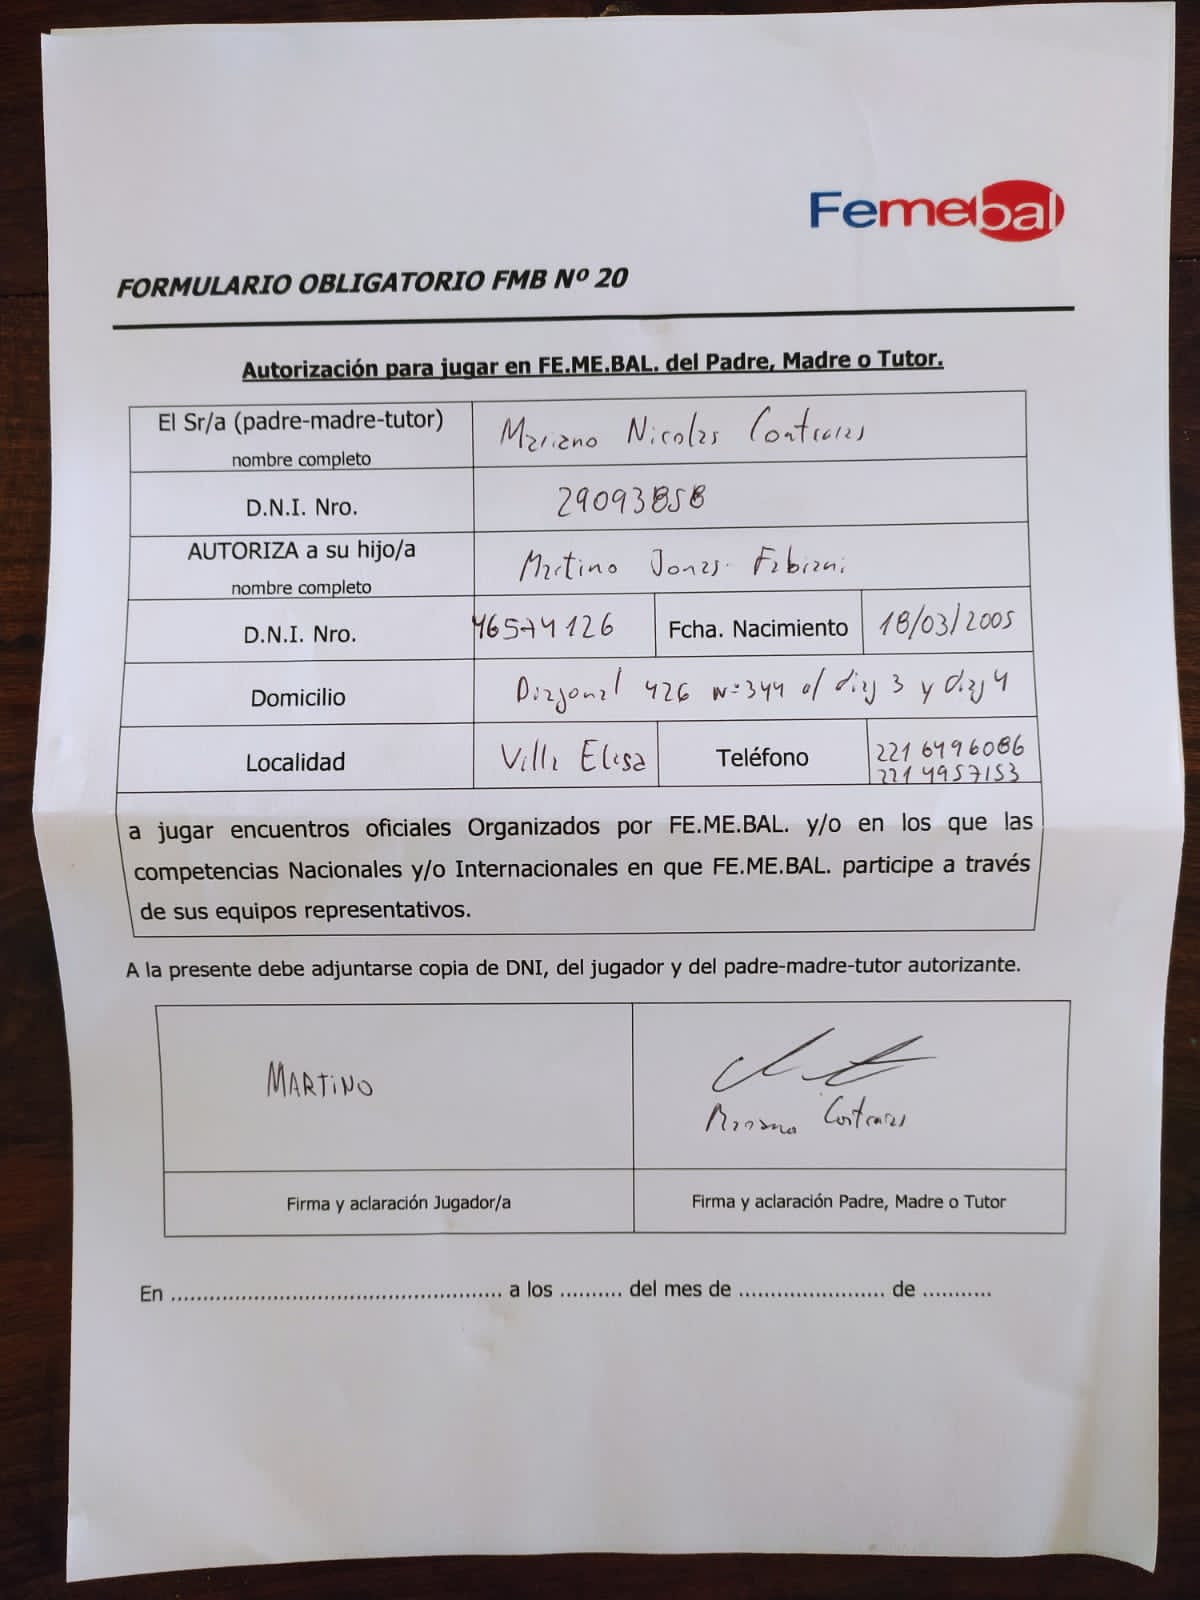 Femebal
FORMULARIO OBLIGATORIO FMB Nº 20
Autorización para jugar en FE.ME.BAL. del Padre, Madre o Tutor.
El Sr/a (padre-madre-tutor)
nombre completo
Mariano Nicolas Contreras
D.N.I. Nro.
29093858
AUTORIZA a su hijo/a
nombre completo
Martino Jonas Fabiani
D.N.I. Nro.
46574126
Fcha. Nacimiento
18/03/2005
Domicilio
Diagonal 426 Nº 344 e/ diag 3 y diag 4
Localidad
Villa Elisa
Teléfono
221 6496086
221 4957153
a jugar encuentros oficiales Organizados por FE.ME.BAL. y/o en los que las
competencias Nacionales y/o Internacionales en que FE.ME.BAL. participe a través
de sus equipos representativos.
A la presente debe adjuntarse copia de DNI, del jugador y del padre-madre-tutor autorizante.
MARTiNO
Mariano Contreras
Firma y aclaración Jugador/a
Firma y aclaración Padre, Madre o Tutor
En .................................................... a los .......... del mes de ....................... de ...........